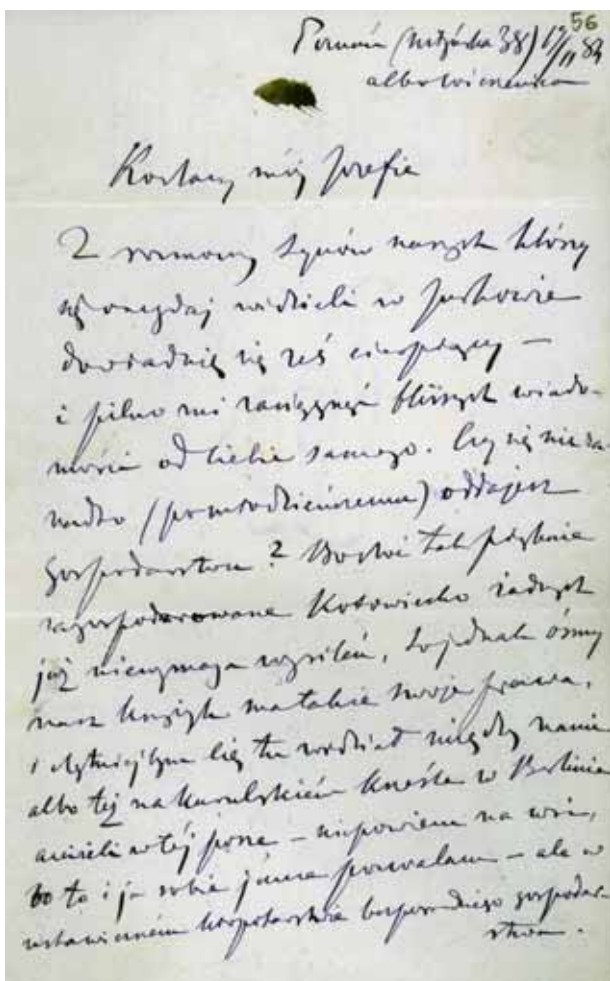 56
Poznań (Młyńska 38) 17/11 83
albo Wiczenica
Kochany mój Józefie
Z rozmowy synów naszych którzy
się onegdaj widzieli w
dowiaduję się żeś cierpiący –
i pilno mi zasięgnąć bliższych wiado-
mości od Ciebie samego. Czy się nie za-
nadto (pomłodzieńczemu) oddajesz
gospodarstwu? Boć tak pięknie
zagospodarowane Kotowiecko żadnych
już niewymaga wysileń, a jednak ósmy
nasz krzyżyk ma także swoje prawa,
i chętniejbym Cię tu widział między nami
albo też na kurulskiém krześle w Berlinie
aniżeli w tej porze – niepowiem na wsi,
bo to i ja sobie jeszcze pozwalam – ale w
ustawiczném bezpośredniego gospodar-
stwa.